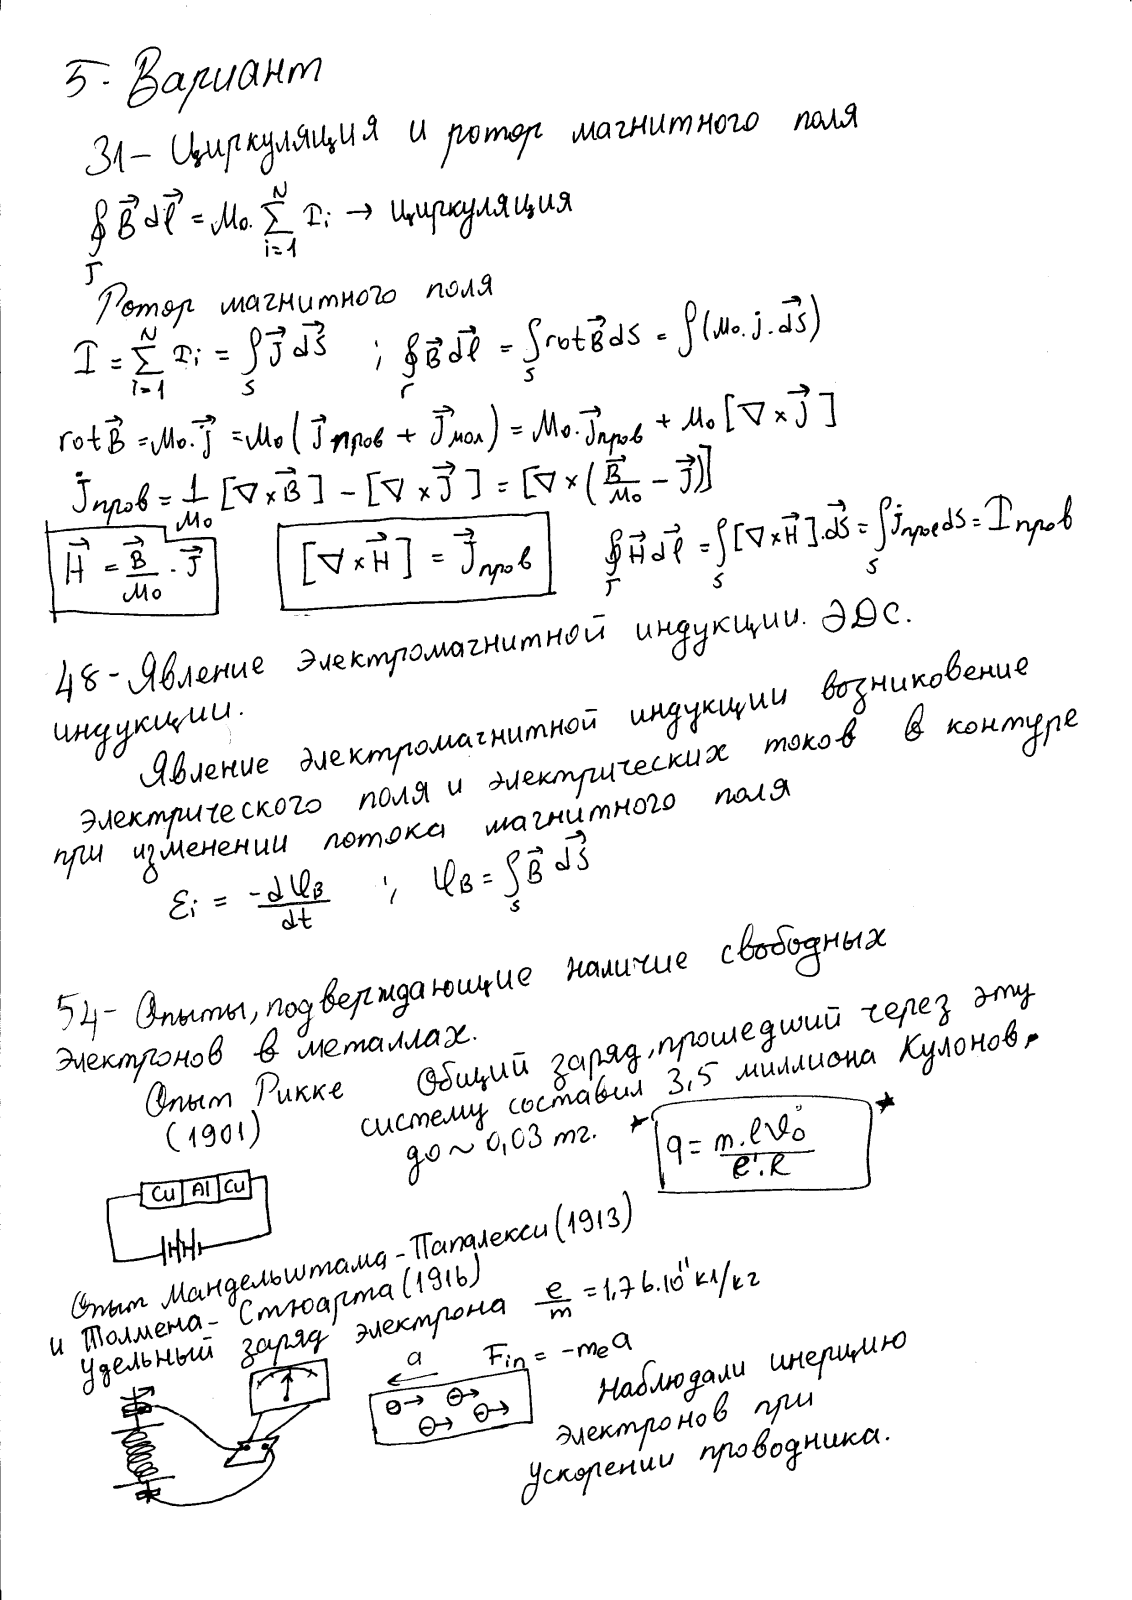 5. Вариант
31 – Циркуляция и ротор магнитного поля
∮_Γ B⃗ dl⃗ = μ₀·∑_{i=1}^{N} I_i → циркуляция
Ротор магнитного поля
I = ∑_{i=1}^{N} I_i = ∫_S J⃗ dS⃗ ; ∮_Γ B⃗ dl⃗ = ∫_S rot B⃗ dS = ∫(μ₀·j·dS⃗)
rot B⃗ = μ₀·j⃗ = μ₀(j⃗пров + J⃗мол) = μ₀·J⃗пров + μ₀[∇×J⃗]
Jпров = 1/μ₀ [∇×B⃗] – [∇×J⃗] = [∇×(B⃗/μ₀ – J⃗)]
H⃗ = B⃗/μ₀ · J⃗ [∇×H⃗] = J⃗пров ∮_Γ H⃗ dl⃗ = ∫_S [∇×H⃗]·dS⃗ = ∫_S jпров dS = Iпров
48 – Явление электромагнитной индукции. ЭДС.
индукции.
Явление электромагнитной индукции возниковение
электрического поля и электрических токов в контуре
при изменении потока магнитного поля
ℰi = -dφB/dt ; φB = ∫_S B⃗ dS⃗
54 – Опыты, подверждающие наличие свободных
электронов в металлах.
Опыт Рикке Общий заряд, прошедший через эту
(1901) систему составил 3,5 миллиона Кулонов,
до ~ 0,03 тг.
q = m·lϑ₀/e'·R
Cu Al Cu
Опыт Мандельштама – Папалекси (1913)
и Толмена – Стюарта (1916)
Удельный заряд электрона e/m = 1,76·10¹¹ кл/кг
a Fin = -mₑa
Наблюдали инерцию
электронов при
ускорении проводника.